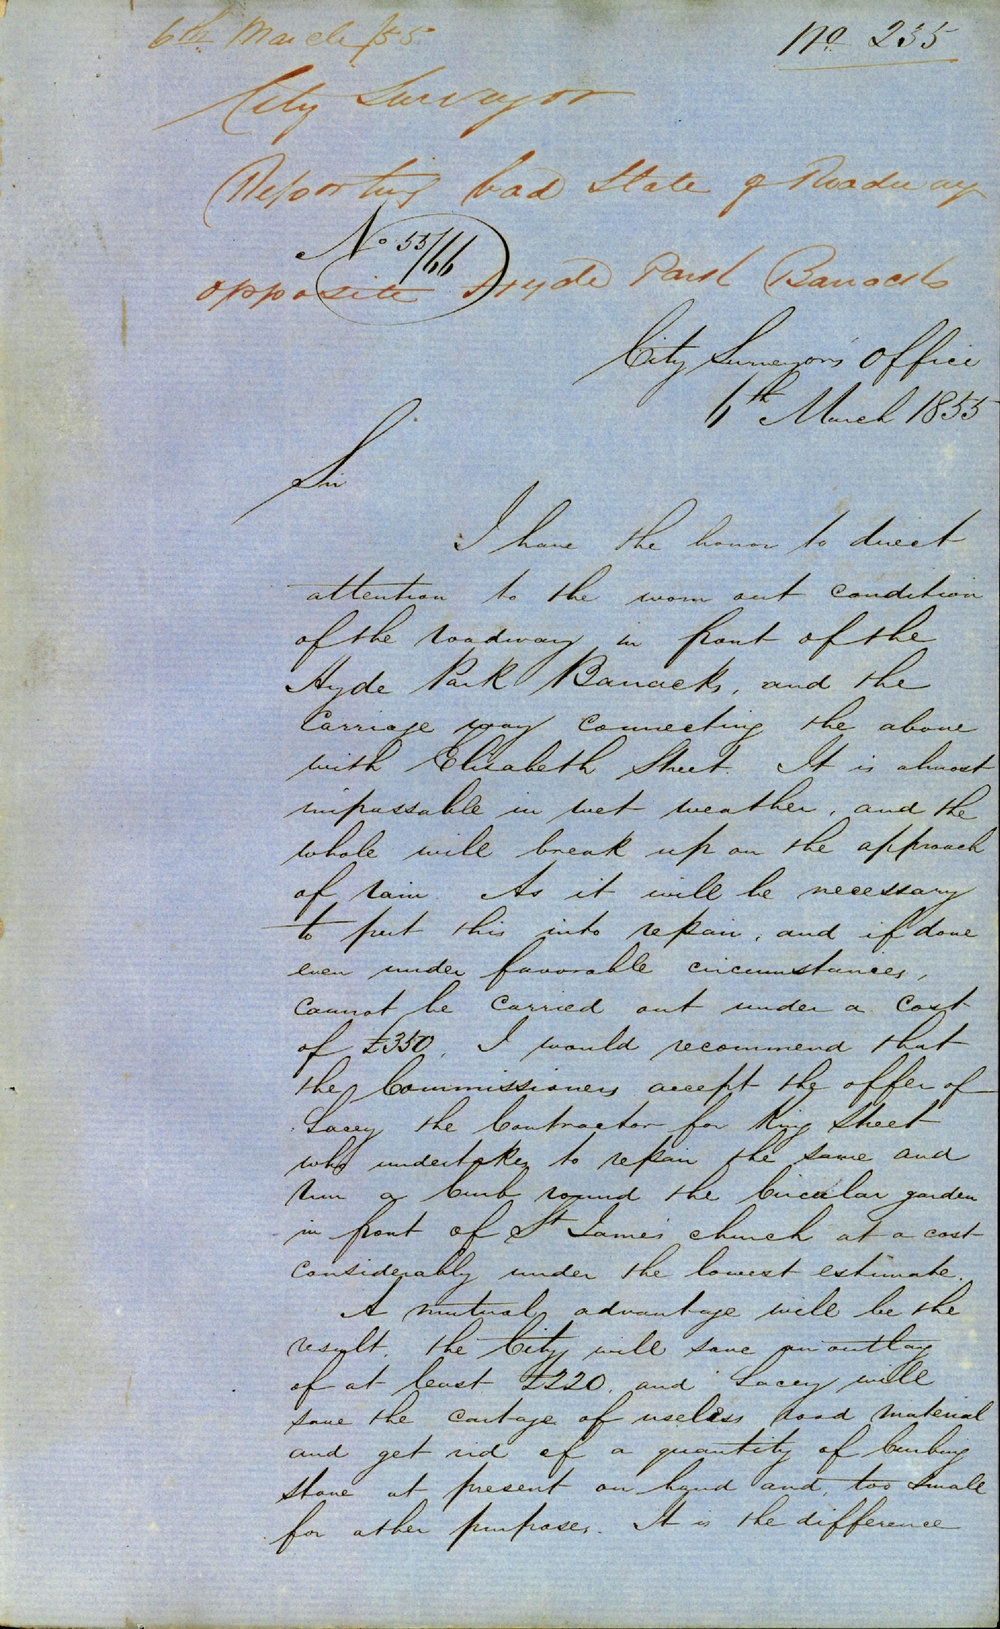 6th March /55
No 235
City Surveyor
Reporting bad State of Roadway
No 55/66
opposite Hyde Park Barracks
City Surveyor's Office
6th March 1855
Sir
I have the honor to direct
attention to the worn out condition
of the roadway in front of the
Hyde Park Barracks, and the
Carriage way connecting the above
with Elizabeth Street. It is almost
impassable in wet weather, and the
whole will break up on the approach
of rain. As it will be necessary
to put this into repair, and if done
even under favorable circumstances,
cannot be carried out under a cost
of £350, I would recommend that
the Commissioners accept the offer of
Lacey the Contractor for King Street
who undertakes to repair the same and
run a Curb round the Circular garden
in front of St James' church at a cost
considerably under the lowest estimate.
A mutual advantage will be the
result, the City will save an outlay
of at least £220, and Lacey will
save the cartage of useless road material
and get rid of a quantity of Curbing
stone at present on hand and, too small
for other purposes. It is the difference